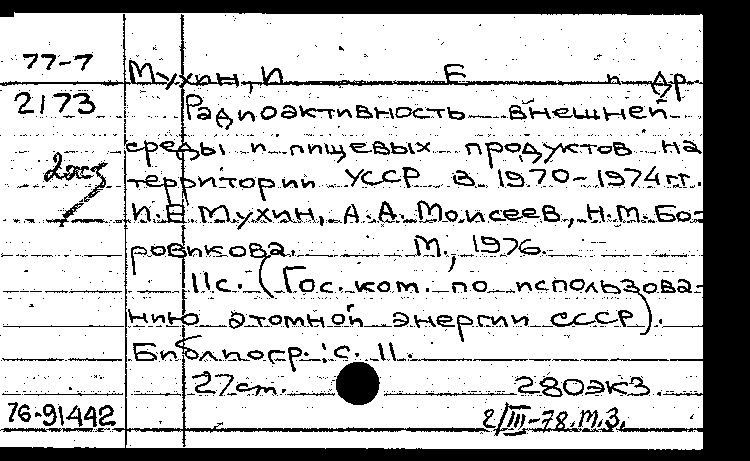 77-7
2173
Мухин, И Е и др
Радиоактивность внешней
среды и пищевых продуктов на
территории УССР в 1970-1974 гг.
И.Е Мухин, А.А. Моисеев, Н.М. Бо-
ровикова. М., 1976.
11с. (Гос. ком. по использова-
нию атомной энергии СССР).
Библиогр.: с. 11.
27см. 280экз.
76-91442
2/III-78.т.3.